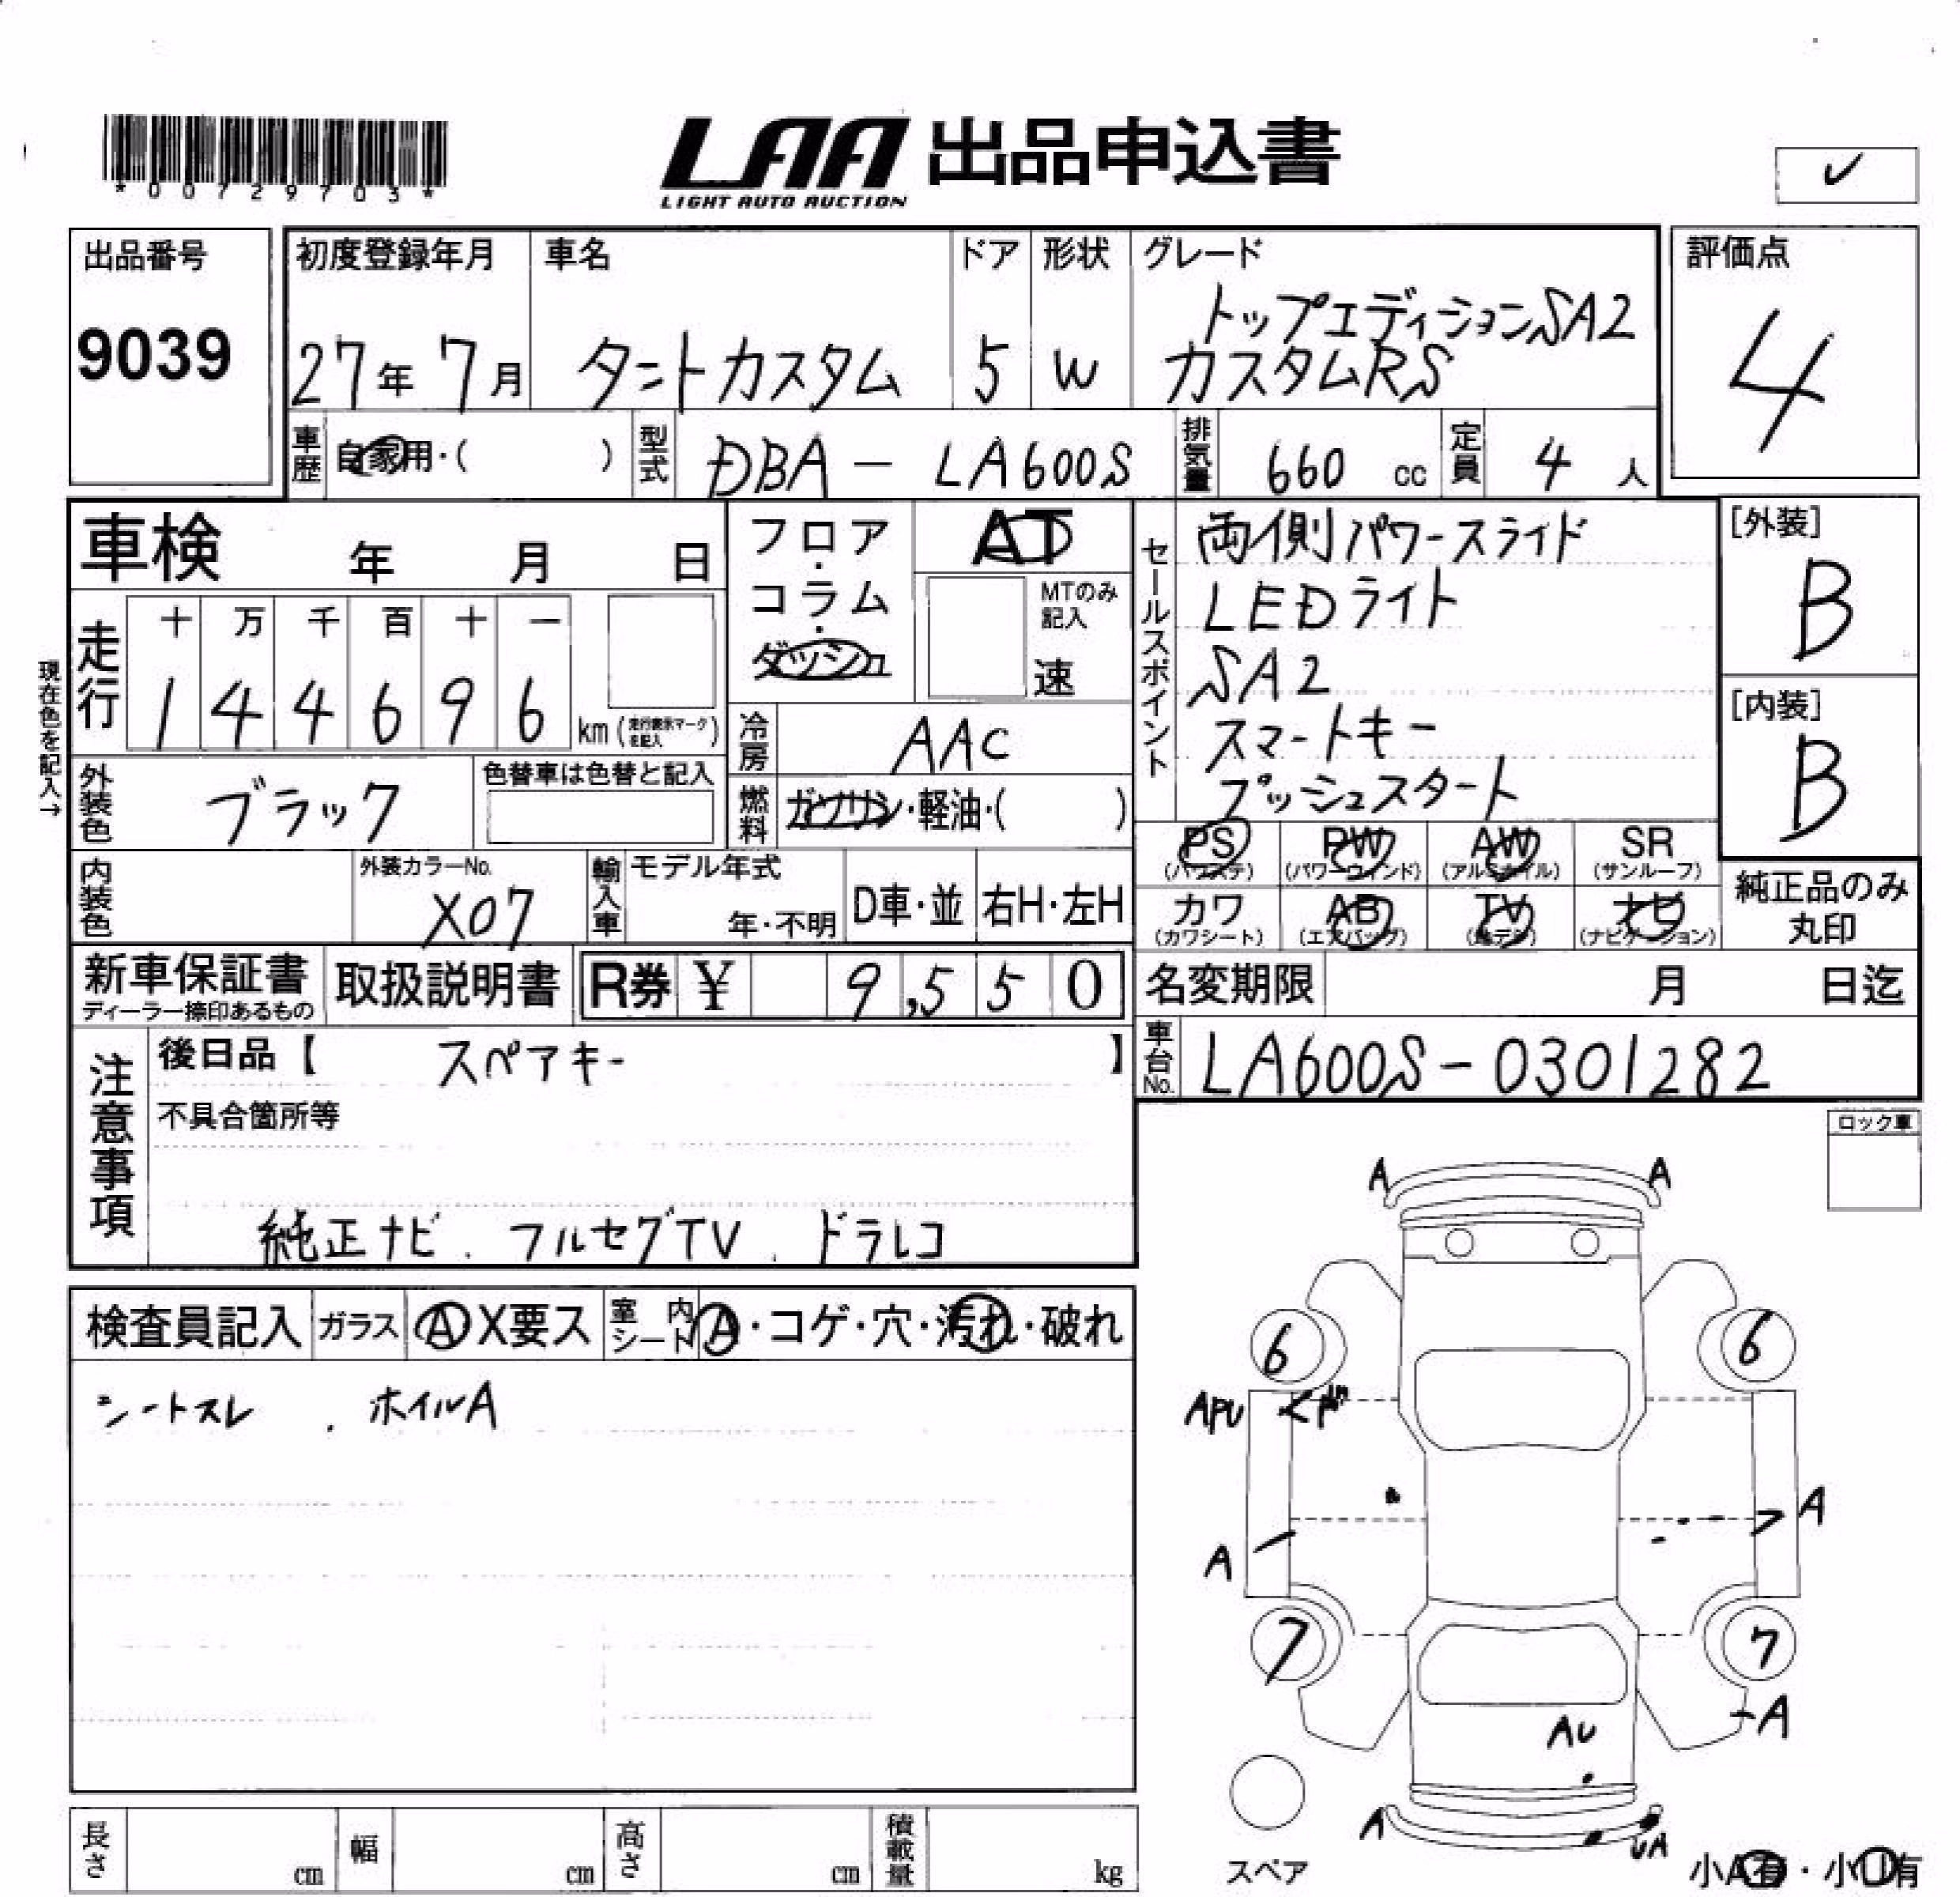 *00729703*
LAA 出品申込書
LIGHT AUTO AUCTION
✓
出品番号
9039
初度登録年月
27年 7月
車名
タントカスタム
ドア
5
形状
W
グレード
トップエディションSA2
カスタムRS
評価点
4
車歴 自家用・( )
型式 DBA - LA600S
排気量 660 cc
定員 4 人
車検 年 月 日
走行
十 万 千 百 十 一
1 4 4 6 9 6 km (走行表示マークを記入)
現在色を記入→
フロア・コラム・ダッシュ
AT
MTのみ記入
速
冷房 AAC
燃料 ガソリン・軽油・( )
外装色 ブラック
色替車は色替と記入
内装色
外装カラーNo.
X07
輸入車
モデル年式
年・不明
D車・並
右H・左H
セールスポイント
両側パワースライド
LEDライト
SA2
スマートキー
プッシュスタート
[外装]
B
[内装]
B
PS (パワステ)
PW (パワーウィンド)
AW (アルミホイル)
SR (サンルーフ)
カワ (カワシート)
AB (エアバッグ)
TV (地デジ)
ナビ (ナビゲーション)
純正品のみ
丸印
新車保証書
ディーラー捺印あるもの
取扱説明書
R券 ¥ 9,550
名変期限 月 日迄
車台No. LA600S-0301282
注意事項
後日品【 スペアキー 】
不具合箇所等
純正ナビ . フルセグTV . ドラレコ
ロック車
検査員記入
ガラス A X要ス
室内シート A・コゲ・穴・汚れ・破れ
シートスレ . ホイルA
A A
6 6
APU
A
A
7 7
A
AU
A
UA
スペア
小A有・小U有
長さ cm
幅 cm
高さ cm
積載量 kg